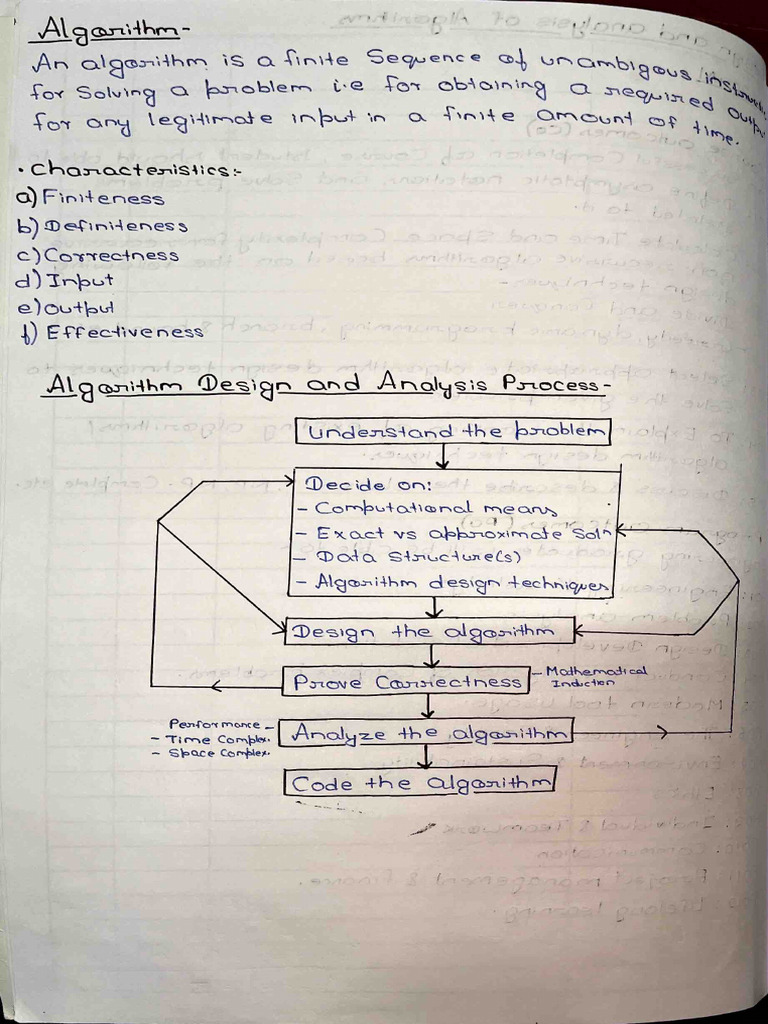 Algorithm-
An algorithm is a finite Sequence of unambigous
for solving a problem i.e for obtaining a required
for any legitimate input in a finite amount of time.
• Characteristics:-
a) Finiteness
b) Definiteness
c) Correctness
d) Input
e) output
f) Effectiveness
Algorithm Design and Analysis Process-
understand the problem
Decide on:
- Computational means
- Exact vs approximate soln
- Data structure(s)
- Algorithm design techniques
Design the algorithm
Prove Correctness - Mathematical
Induction
Performance -
- Time Complex.
- Space Complex.
Analyze the algorithm
Code the algorithm